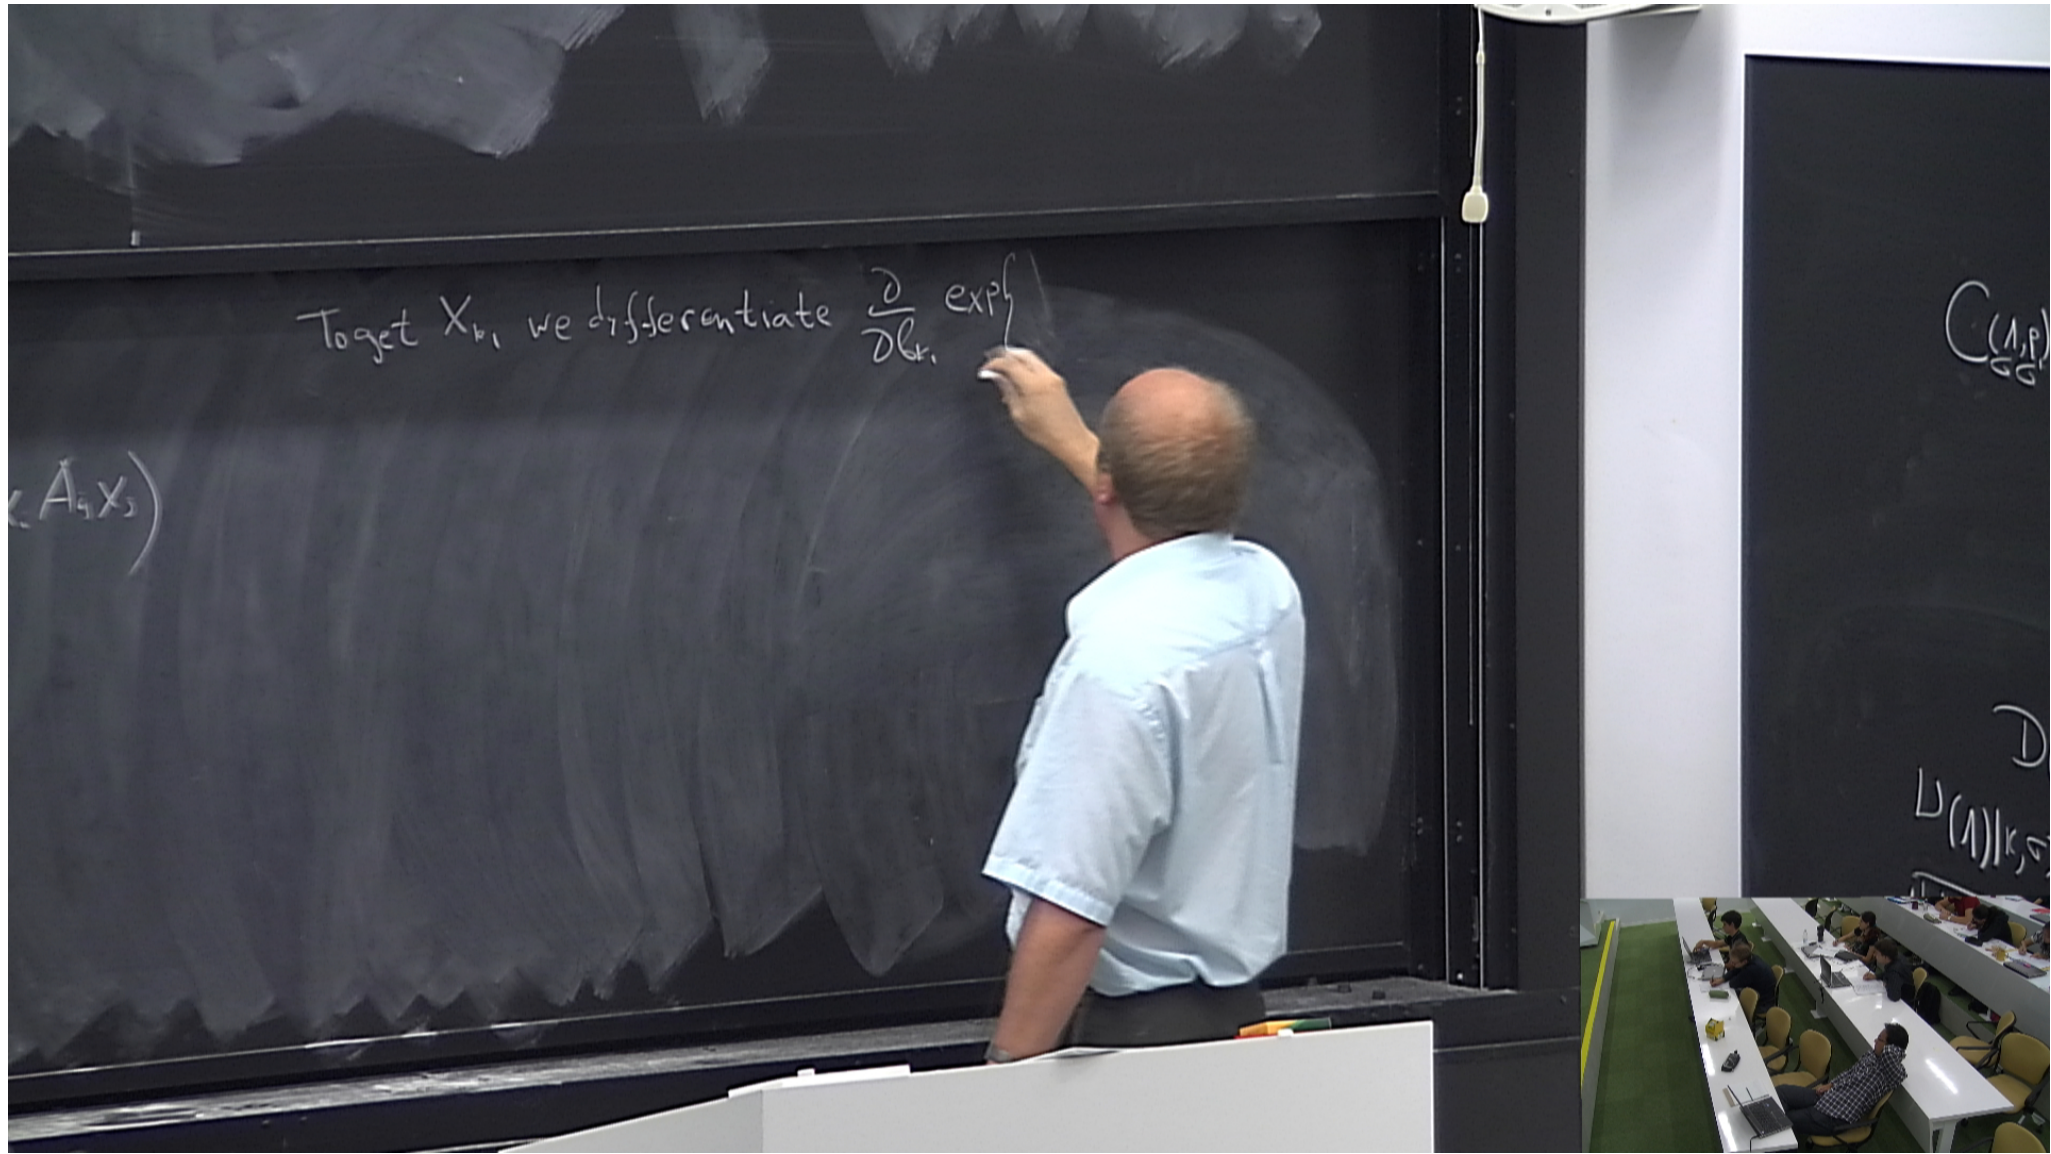 To get X_{k_1} we differentiate ∂/∂b_{k_1} exp{
A_{ij} x_j)
C_{(1,p)
σ σ
D
(1)|k,σ